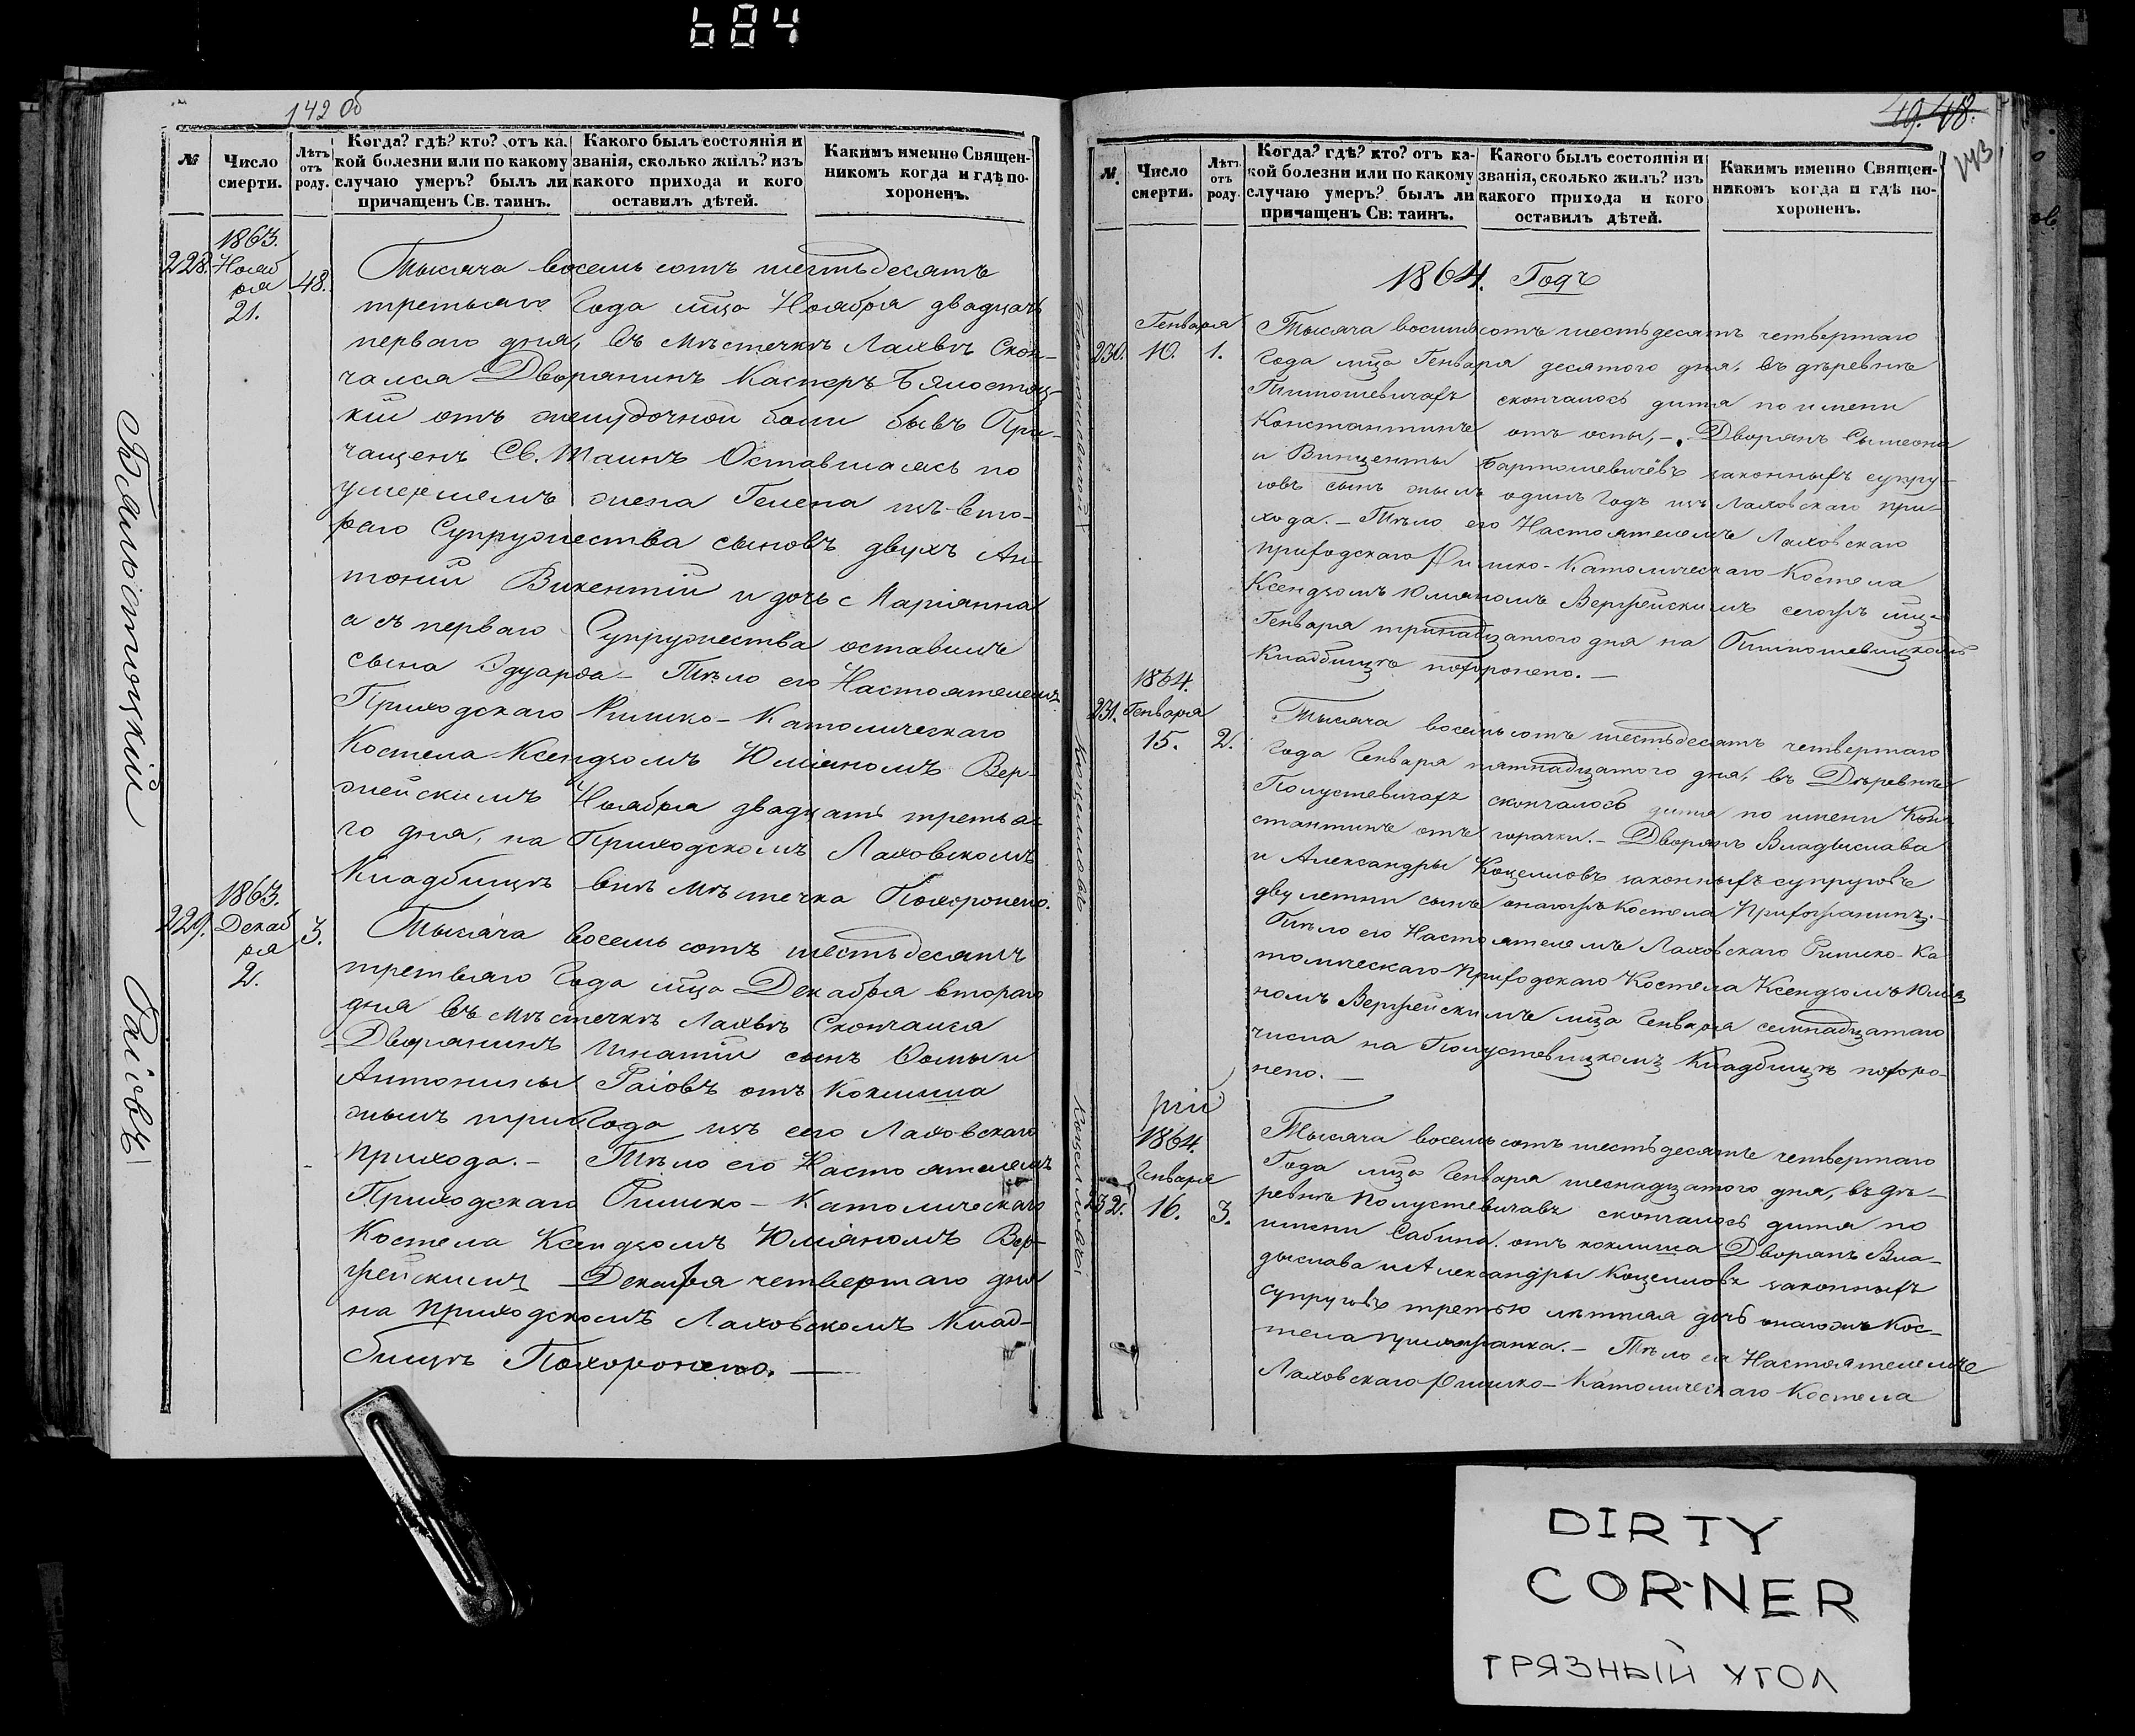 684
142 Об
№
Число смерти.
Лѣтъ отъ роду.
Когда? гдѣ? кто? отъ ка-
кой болезни или по какому
случаю умеръ? былъ ли
причащенъ Св. таинъ.
Какого былъ состоянія и
званія, сколько жилъ? изъ
какого прихода и кого
оставилъ дѣтей.
Какимъ именно Священ-
никомъ когда и гдѣ по-
хороненъ.
228.
1863.
Нояб
ря
21.
48.
Тысяча восемь сотъ шестьдесятъ
третьяго Года мца Ноября двадцать
перваго дня, въ мѣстечкѣ Лахвѣ Скон-
чался Дворянинъ Касперъ Бялостоц-
кій отъ желудочной боли бывъ При-
чащенъ Св. Таинъ Оставшаясь по
умершемъ жена Гелена изъ вто-
раго Супружества сыновъ двухъ Ан-
тоній Викентій и дочь Маріянна
а съ перваго Супружества оставилъ
сына Эдуарда – Тѣло его Настоятелемъ
Приходскаго Римко-Католическаго
Костела Ксендзомъ Юліяномъ Вер-
жейскимъ Ноября двадцать третья-
го дня, на Приходскомъ Лаховскомъ
Кладбищѣ внѣ мѣстечка Похоронено.
Бялостоцкій
229.
1863.
Декаб
ря
2.
3.
Тысяча восемь сотъ шестьдесятъ
третьяго Года мца Декабря втораго
дня въ мѣстечкѣ Лахвѣ Скончался
Дворянинъ Игнатій сынъ Ѳомы и
Антонины Раіовъ отъ Коклюша
жилъ три Года изъ его Лаховскаго
Прихода. – Тѣло его Настоятелемъ
Приходскаго Римко-Католическаго
Костела Ксендзомъ Юліяномъ Вер-
жейскимъ Декабря четвертаго дня
на приходскомъ Лаховскомъ Клад-
бищѣ Похоронено. —
Раіовъ
49. 48.
143
№.
Число смерти.
Лѣтъ отъ роду.
Когда? гдѣ? кто? отъ ка-
кой болезни или по какому
случаю умеръ? былъ ли
причащенъ Св: таинъ.
Какого былъ состоянія и
званія, сколько жилъ? изъ
какого прихода и кого
оставилъ дѣтей.
Какимъ именно Священ-
никомъ когда и гдѣ по-
хороненъ.
1864. Годъ
230.
Генваря
10.
1.
Тысяча восемьсотъ шестьдесятъ четвертаго
Года мца Генваря десятого дня, въ дѣревнѣ
скончалось дитя по имени
Константинъ отъ оспы, – Дворянъ Сымеона
и Винценты Бартошевичёвъ законныхъ супру-
говъ сынъ жылъ одинъ Годъ изъ Лаховскаго при-
хода. – Тѣло его Настоятелемъ Лаховскаго
приходскаго Римко-Католическаго Костела
Ксендзомъ Юліяномъ Вержейскимъ сегожъ мца
Генваря тринадцатого дня на
Кладбищѣ похоронено. —
231.
1864.
Генваря
15.
2.
Тысяча восемьсотъ шестьдесятъ четвертаго
Года Генваря пятнадцатого дня, въ Дѣревнѣ
Полустевичахъ скончалось дитя по имени Кон-
стантинъ отъ горачки. – Дворянъ Владыслава
и Александры Коцелловъ законныхъ супруговъ
двулетни сынъ онагожъ Костела Прихожанинъ. –
Тѣло его Настоятелемъ Лаховскаго Римко-Ка-
толическаго Приходскаго Костела Ксендзомъ Юлія-
номъ Вержейскимъ мца Генваря семнадцатаго
числа на Полустевицкомъ Кладбищѣ похоро-
нено. —
Коцелловъ
232.
1864.
Генваря
16.
3.
Тысяча восемьсотъ шестьдесятъ четвертаго
Года мца Генваря шеснадцатого дня, въ дѣ-
ревнѣ Полустевичахъ скончалось дитя по
имени Сабина отъ коклюша Дворянъ Вла-
дыслава и Александры Коцелловъ законныхъ
супруговъ третью лѣтняя дочь онагожъ Кос-
тела прихожанка. – Тѣло ея Настоятелемъ
Лаховскаго Римко-Католическаго Костела
DIRTY
CORNER
ГРЯЗНЫЙ УГОЛ